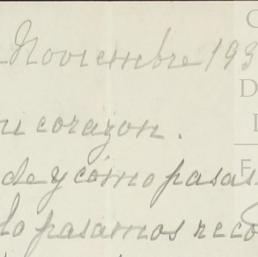 Noviembre 193
mi corazon.
de y cómo pasas
lo pasamos reco